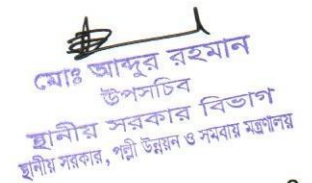 মোঃ আব্দুর রহমান
উপসচিব
স্থানীয় সরকার বিভাগ
স্থানীয় সরকার, পল্লী উন্নয়ন ও সমবায় মন্ত্রণালয়